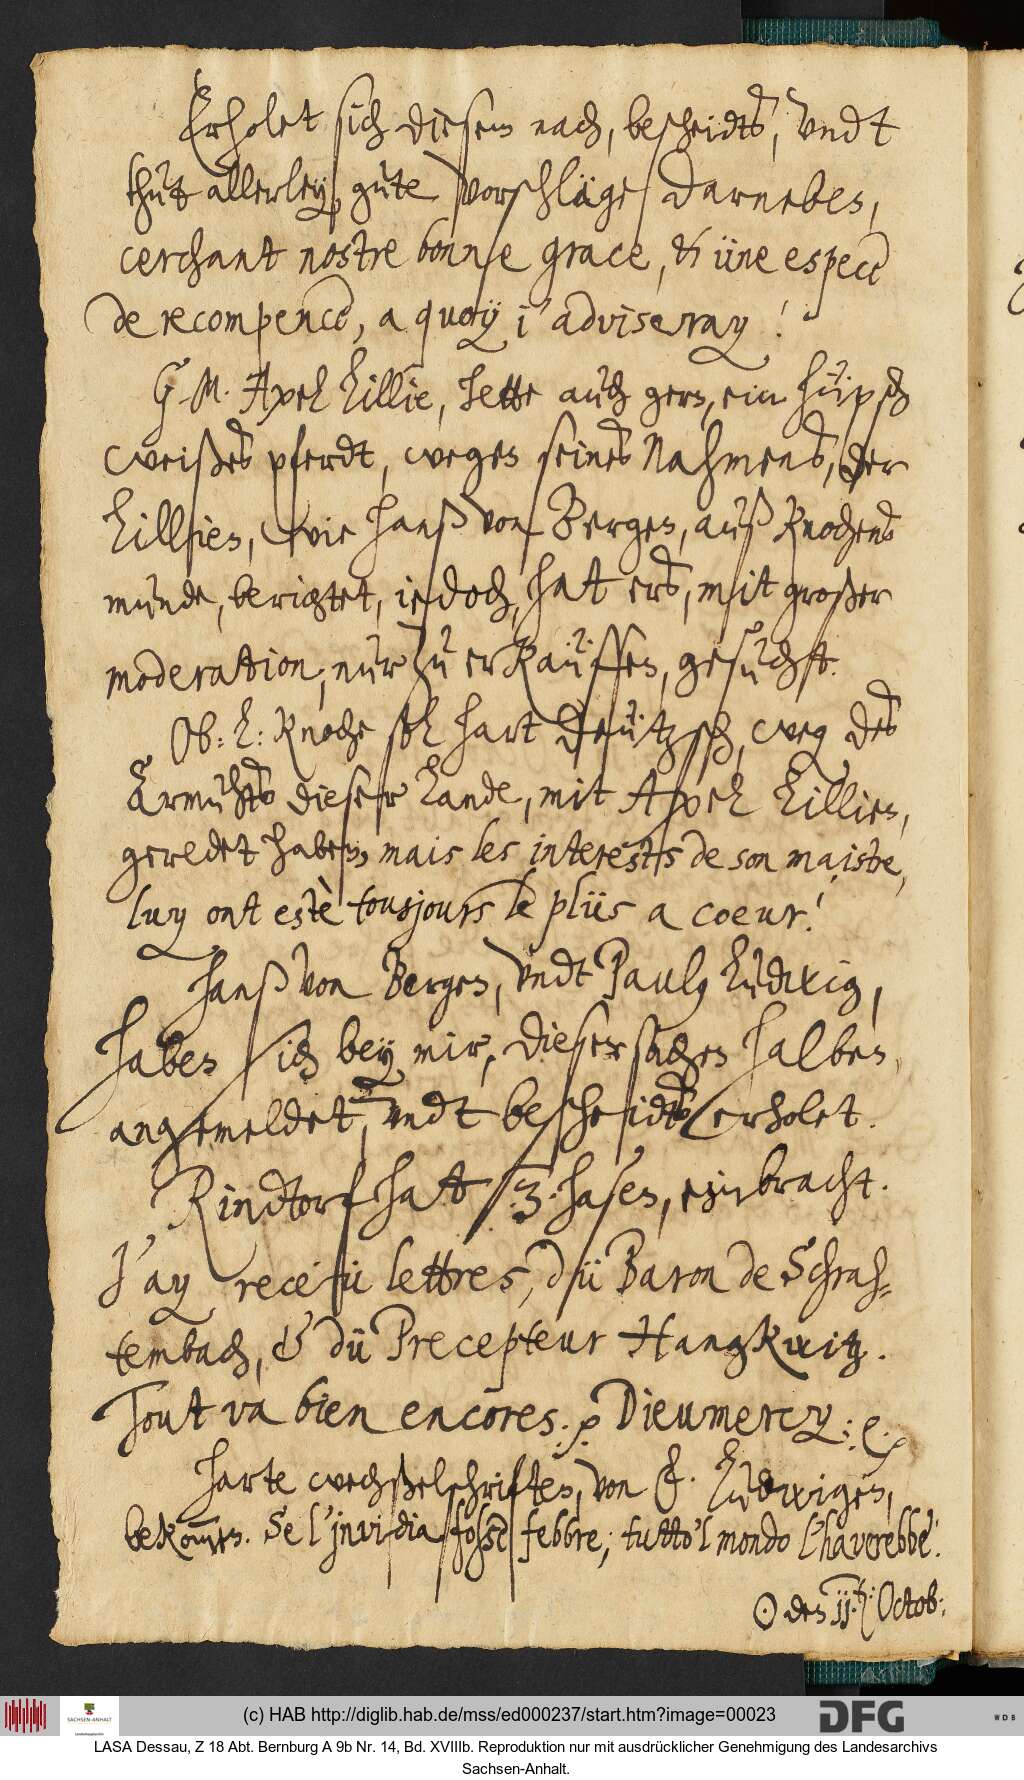 Erholet sich diesem nach, bescheidts, vndt
thut allerley gute vorschläge darneben,
cerchant nostre bonne grace, & üne espece
de recompence, a quoy j'adviseray!
G. M. Axel Lillie, hette auch gern, ein hüpsch
weißes pferdt, wegen seines Nahmens, der
Lillien, wie Hanß von Bergen, auß Knochens
munde, berichtet, iedoch, hat ers, mit großer
moderation, nur zu erkauffen, gesucht.
Ob: L: Knoche sol hart deützsch, weg des
Armuhts dieser Lande, mit Axel Lillien,
geredet haben, mais les interests de son maistre,
luy ont estè tousjours le plüs a coeur!
Hanß von Bergen, vndt Paulg Ludwig,
haben sich bey mir, dieser sachen halben,
angemeldet, vndt bescheidts erholet.
Rindtorf hat 3. hasen, einbracht.
J'ay receü lettres, dü Baron de Schrah-
tembach, & dü Precepteur Hangkwitz.
Tout va bien encores. Dieumercy:
Harte wechßelschriften, von F. Ludwigen,
bekommen. Se l'jnvidia fosse febbre; tutto'l mondo l'haverebbe.
☉ den 11.ten: Octob:
(c) HAB http://diglib.hab.de/mss/ed000237/start.htm?image=00023
SACHSEN-ANHALT
DFG
WDB
LASA Dessau, Z 18 Abt. Bernburg A 9b Nr. 14, Bd. XVIIIb. Reproduktion nur mit ausdrücklicher Genehmigung des Landesarchivs
Sachsen-Anhalt.